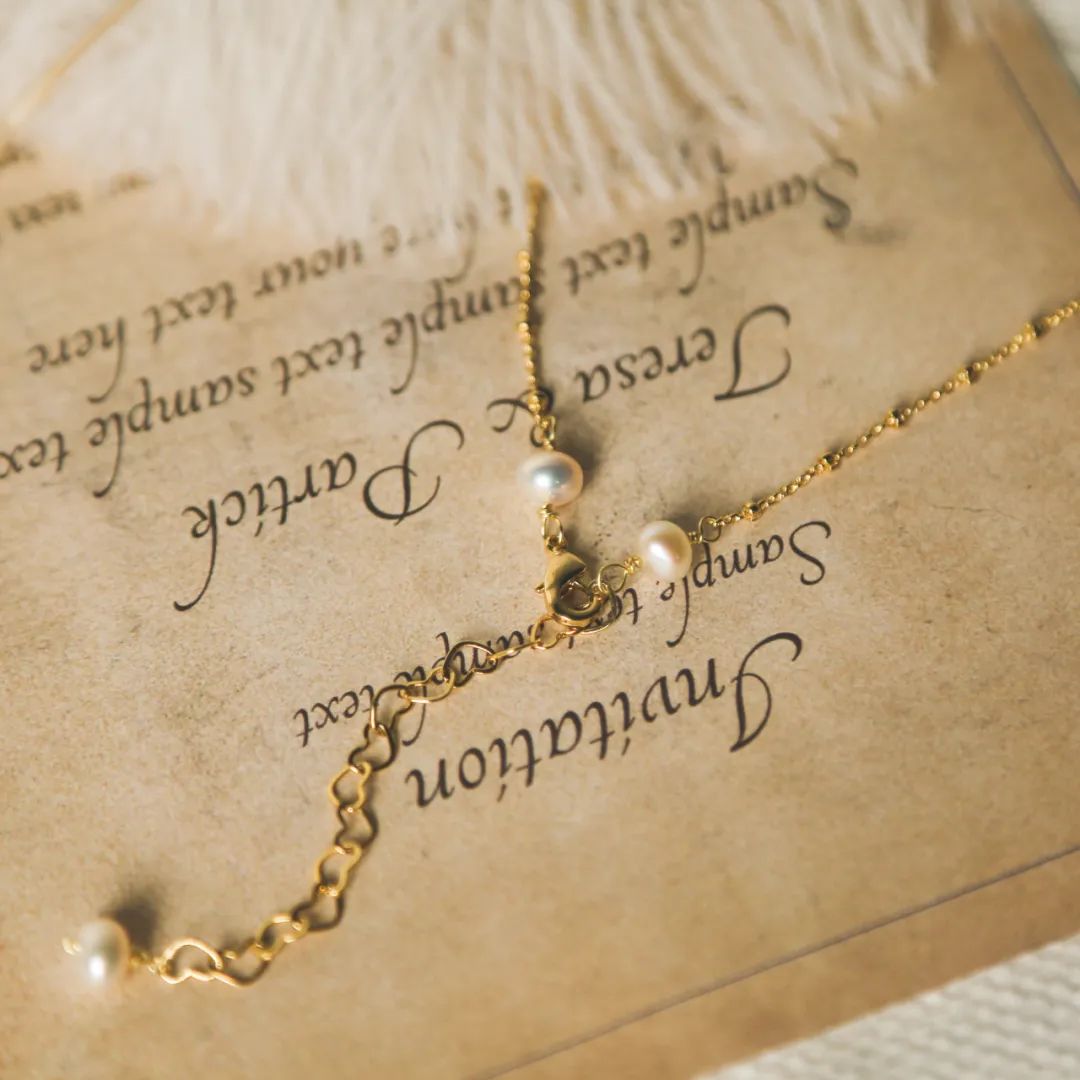 Invitation
Sample text sample text
Teresa &
Partick
Sample text sample text sample text
here your text here
text